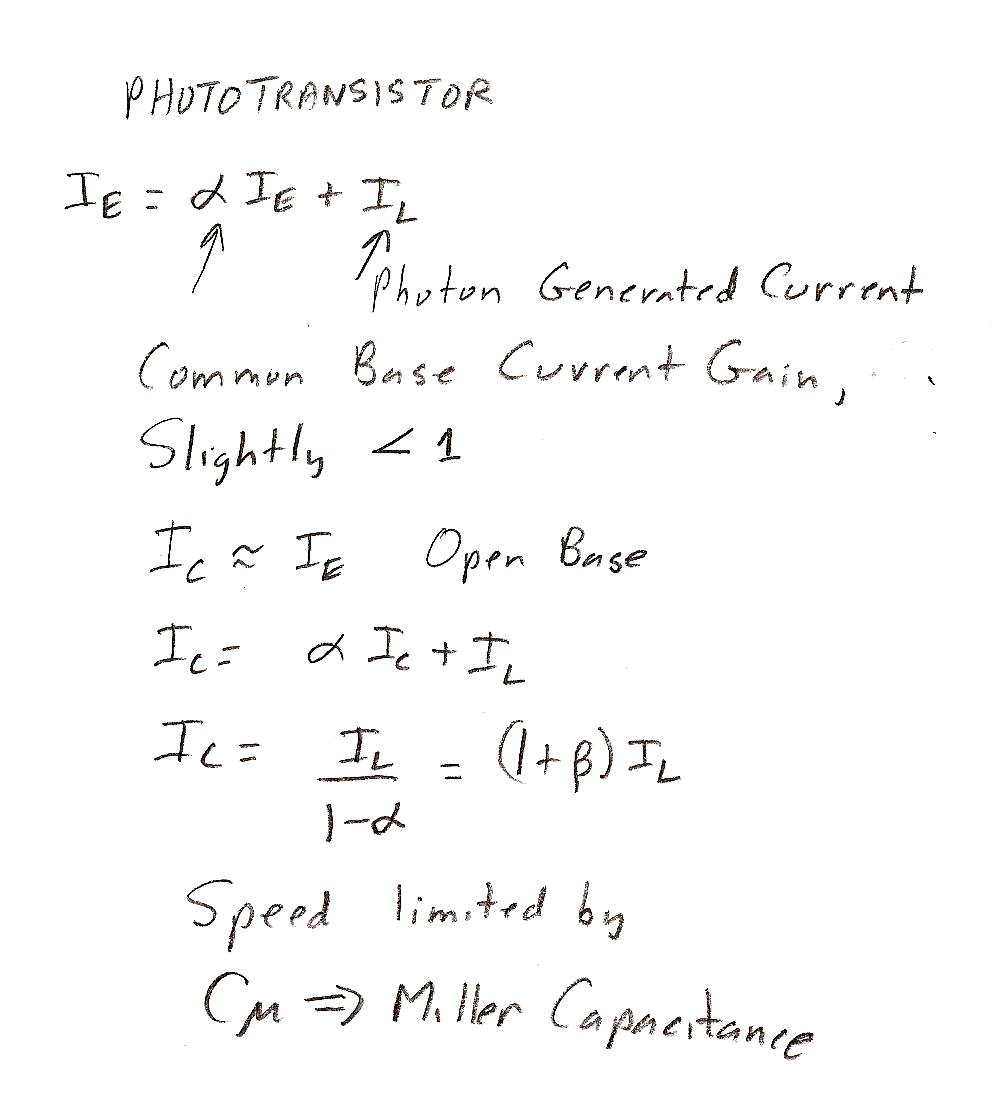 PHOTOTRANSISTOR
I_E = α I_E + I_L
Photon Generated Current
Common Base Current Gain,
Slightly < 1
I_C ≈ I_E Open Base
I_C = α I_C + I_L
I_C = I_L / 1-α = (1+β) I_L
Speed limited by
Cμ ⇒ Miller Capacitance